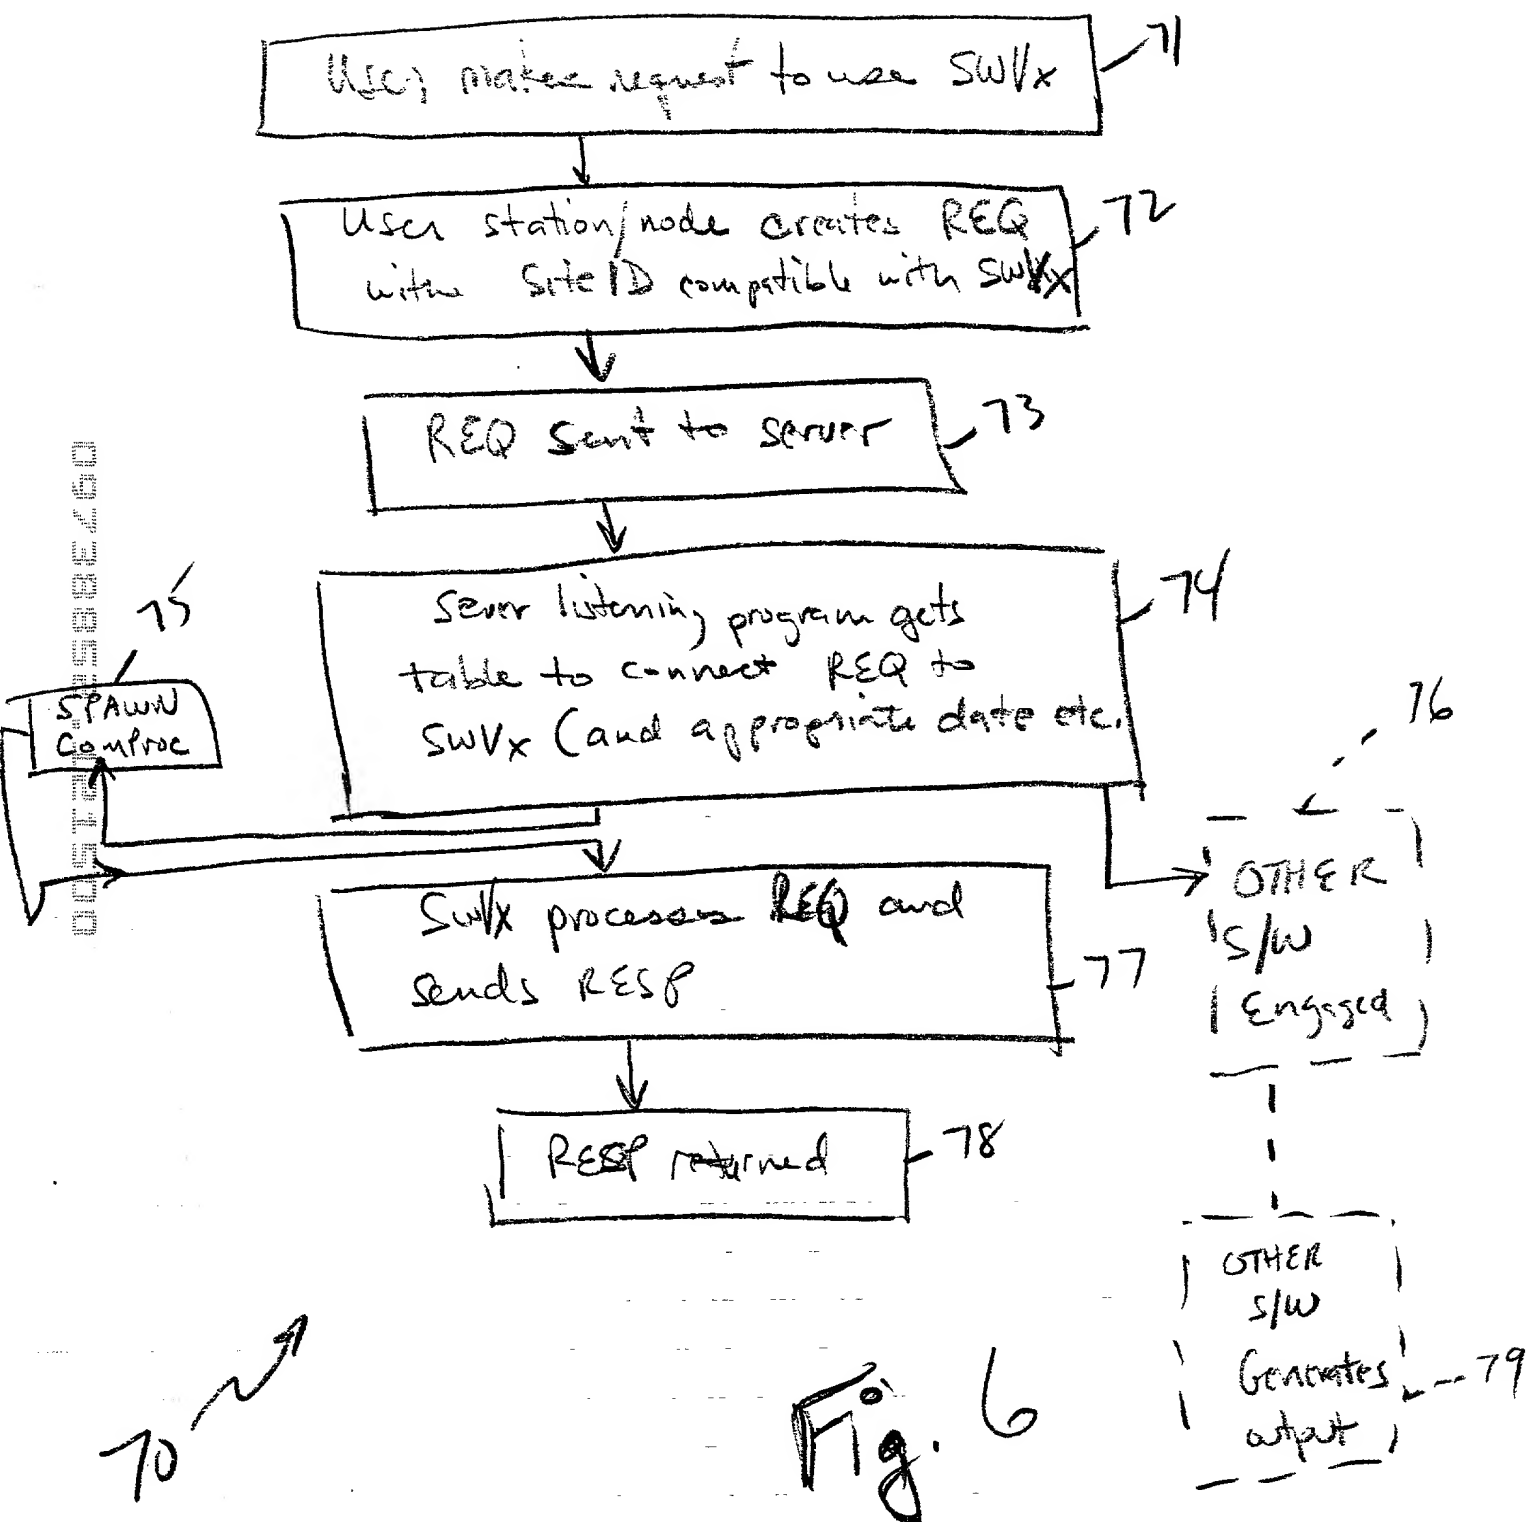 User makes request to use SWVx
71
User station/node creates REQ
with SiteID compatible with SWVx
72
REQ sent to server
73
Server listening program gets
table to connect REQ to
SWVx (and appropriate date etc.
74
75
SPAWN
ComProc
76
OTHER
S/W
Engaged
SWVx processes REQ and
sends RESP
77
RESP returned
78
OTHER
S/W
Generates
output
79
70
Fig. 6